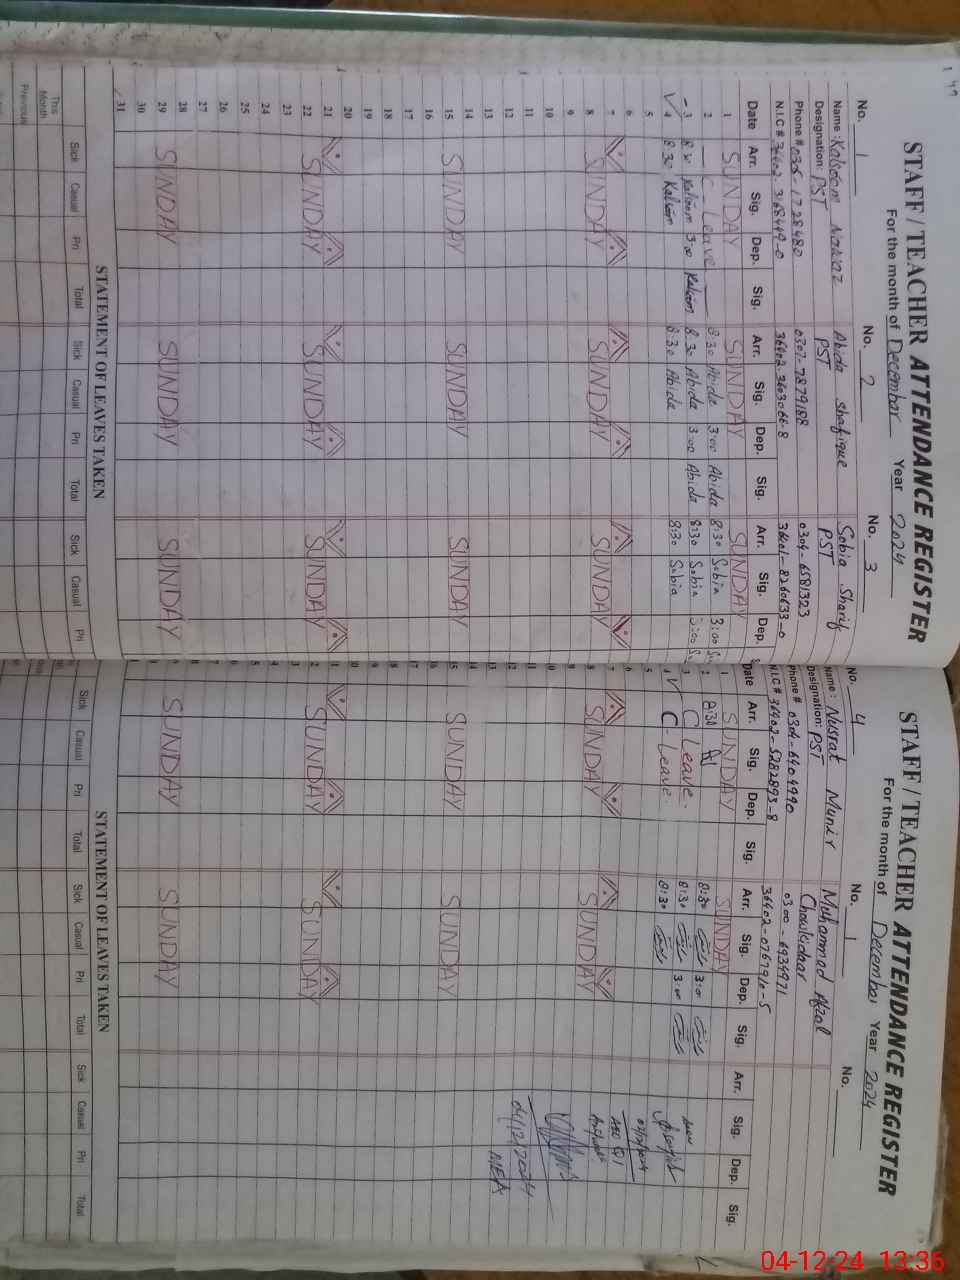 STAFF / TEACHER ATTENDANCE REGISTER
For the month of December Year 2024
No. 1 No. 2 No. 3
Name: Kalsoom Nawaz Abida Shafique Sobia Sharif
Designation: PST PST PST
Phone # 0306-1728480 0307-7879188 0304-6581323
N.I.C # 36402-3168449-0 36402-3603066-8 36401-8260633-0
Date Arr. Sig. Dep. Sig. Arr. Sig. Dep. Sig. Arr. Sig. Dep.
1 SUNDAY SUNDAY SUNDAY
2 C - Leave 8:30 Abida 3:00 Abida 8:30 Sobia 3:00
3 8:30 Kalsoom 3:00 Kalsoom 8:30 Abida 3:00 Abida 8:30 Sobia 3:00
4 8:30 Kalsoom 8:30 Abida 8:30 Sobia
5
6
7
8 SUNDAY SUNDAY SUNDAY
9
10
11
12
13
14
15 SUNDAY SUNDAY SUNDAY
16
17
18
19
20
21
22 SUNDAY SUNDAY SUNDAY
23
24
25
26
27
28
29 SUNDAY SUNDAY SUNDAY
30
31
STATEMENT OF LEAVES TAKEN
Sick Casual Pri Total Sick Casual Pri Total Sick Casual Pri
This Month
Previous
STAFF / TEACHER ATTENDANCE REGISTER
For the month of December Year 2024
No. 4 No. 1 No.
Name: Nusrat Munir Muhammad Afzal
Designation: PST Chowkidaar
Phone # 0304-6404990 0300-6934971
N.I.C # 36402-5282893-8 36402-0767910-5
Date Arr. Sig. Dep. Sig. Arr. Sig. Dep. Sig. Arr. Sig. Dep. Sig.
1 SUNDAY SUNDAY
2 8:30 8:30 3:0
3 C Leave 8:30 3:00
4 C - Leave 8:30
5
6
7
8 SUNDAY SUNDAY
11
12
13
15 SUNDAY SUNDAY
SUNDAY SUNDAY
SUNDAY SUNDAY
04/12/2024
MEA
STATEMENT OF LEAVES TAKEN
Sick Casual Pri Total Sick Casual Pri Total Sick Casual Pri Total
04-12-24 13:36